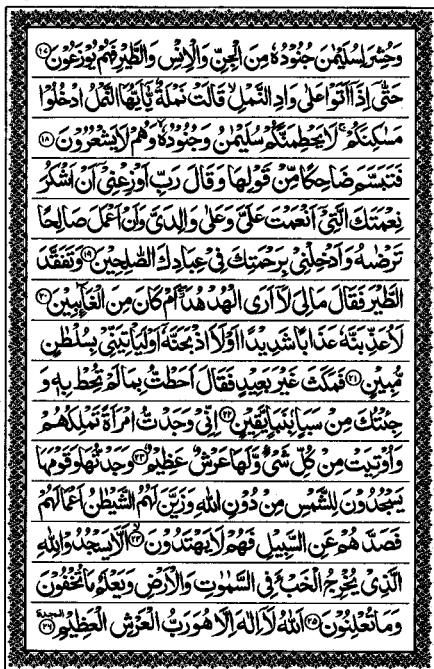 وَحُشِرَ لِسُلَيْمٰنَ جُنُوْدُهٗ مِنَ الْجِنِّ وَالْاِنْسِ وَالطَّيْرِ فَهُمْ يُوْزَعُوْنَ ﴿۱۷﴾
حَتّٰۤى اِذَاۤ اَتَوْا عَلٰى وَادِ النَّمْلِ ۙ قَالَتْ نَمْلَةٌ يّٰۤاَيُّهَا النَّمْلُ ادْخُلُوْا
مَسٰكِنَكُمْ ۚ لَا يَحْطِمَنَّكُمْ سُلَيْمٰنُ وَجُنُوْدُهٗ ۙ وَهُمْ لَا يَشْعُرُوْنَ ﴿۱۸﴾
فَتَبَسَّمَ ضَاحِكًا مِّنْ قَوْلِهَا وَقَالَ رَبِّ اَوْزِعْنِيْۤ اَنْ اَشْكُرَ
نِعْمَتَكَ الَّتِيْۤ اَنْعَمْتَ عَلَيَّ وَعَلٰى وَالِدَيَّ وَاَنْ اَعْمَلَ صَالِحًا
تَرْضٰىهُ وَاَدْخِلْنِيْ بِرَحْمَتِكَ فِيْ عِبَادِكَ الصّٰلِحِيْنَ ﴿۱۹﴾ وَتَفَقَّدَ
الطَّيْرَ فَقَالَ مَا لِيَ لَاۤ اَرَى الْهُدْهُدَ ۖ اَمْ كَانَ مِنَ الْغَآىِٕبِيْنَ ﴿۲۰﴾
لَاُعَذِّبَنَّهٗ عَذَابًا شَدِيْدًا اَوْ لَاَاذْبَحَنَّهٗۤ اَوْ لَيَاْتِيَنِّيْ بِسُلْطٰنٍ
مُّبِيْنٍ ﴿۲۱﴾ فَمَكَثَ غَيْرَ بَعِيْدٍ فَقَالَ اَحَطْتُّ بِمَا لَمْ تُحِطْ بِهٖ وَ
جِئْتُكَ مِنْ سَبَاٍۭ بِنَبَاٍ يَّقِيْنٍ ﴿۲۲﴾ اِنِّيْ وَجَدْتُّ امْرَاَةً تَمْلِكُهُمْ
وَاُوْتِيَتْ مِنْ كُلِّ شَيْءٍ وَّلَهَا عَرْشٌ عَظِيْمٌ ﴿۲۳﴾ وَجَدْتُّهَا وَقَوْمَهَا
يَسْجُدُوْنَ لِلشَّمْسِ مِنْ دُوْنِ اللّٰهِ وَزَيَّنَ لَهُمُ الشَّيْطٰنُ اَعْمَالَهُمْ
فَصَدَّهُمْ عَنِ السَّبِيْلِ فَهُمْ لَا يَهْتَدُوْنَ ﴿۲۴﴾ اَلَّا يَسْجُدُوْا لِلّٰهِ
الَّذِيْ يُخْرِجُ الْخَبْءَ فِي السَّمٰوٰتِ وَالْاَرْضِ وَيَعْلَمُ مَا تُخْفُوْنَ
وَمَا تُعْلِنُوْنَ ﴿۲۵﴾ اَللّٰهُ لَاۤ اِلٰهَ اِلَّا هُوَ رَبُّ الْعَرْشِ الْعَظِيْمِ ﴿۲۶﴾ السجدة